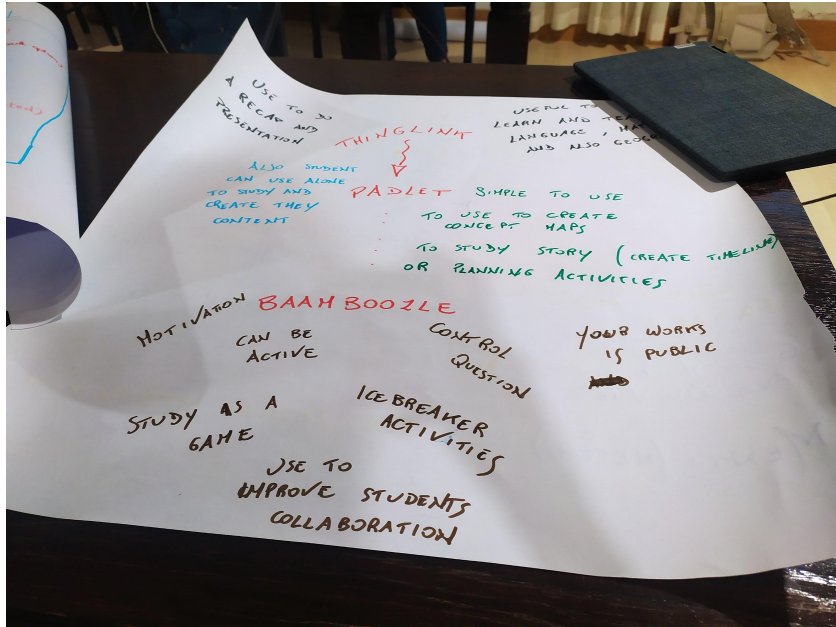 USE TO DO
A RECAP AND
PRESENTATION
USEFUL TO
LEARN AND
LANGUAGE,
AND ALSO
THINGLINK
ALSO STUDENT
CAN USE ALONE
TO STUDY AND
CREATE THEY
CONTENT
PADLET
SIMPLE TO USE
TO USE TO CREATE
CONCEPT MAPS
TO STUDY STORY (CREATE TIMELINE)
OR PLANNING ACTIVITIES
BAAMBOOZLE
MOTIVATION
CAN BE
ACTIVE
CONTROL
QUESTION
YOUR WORKS
IS PUBLIC
STUDY AS A
GAME
ICEBREAKER
ACTIVITIES
USE TO
IMPROVE STUDENTS
COLLABORATION